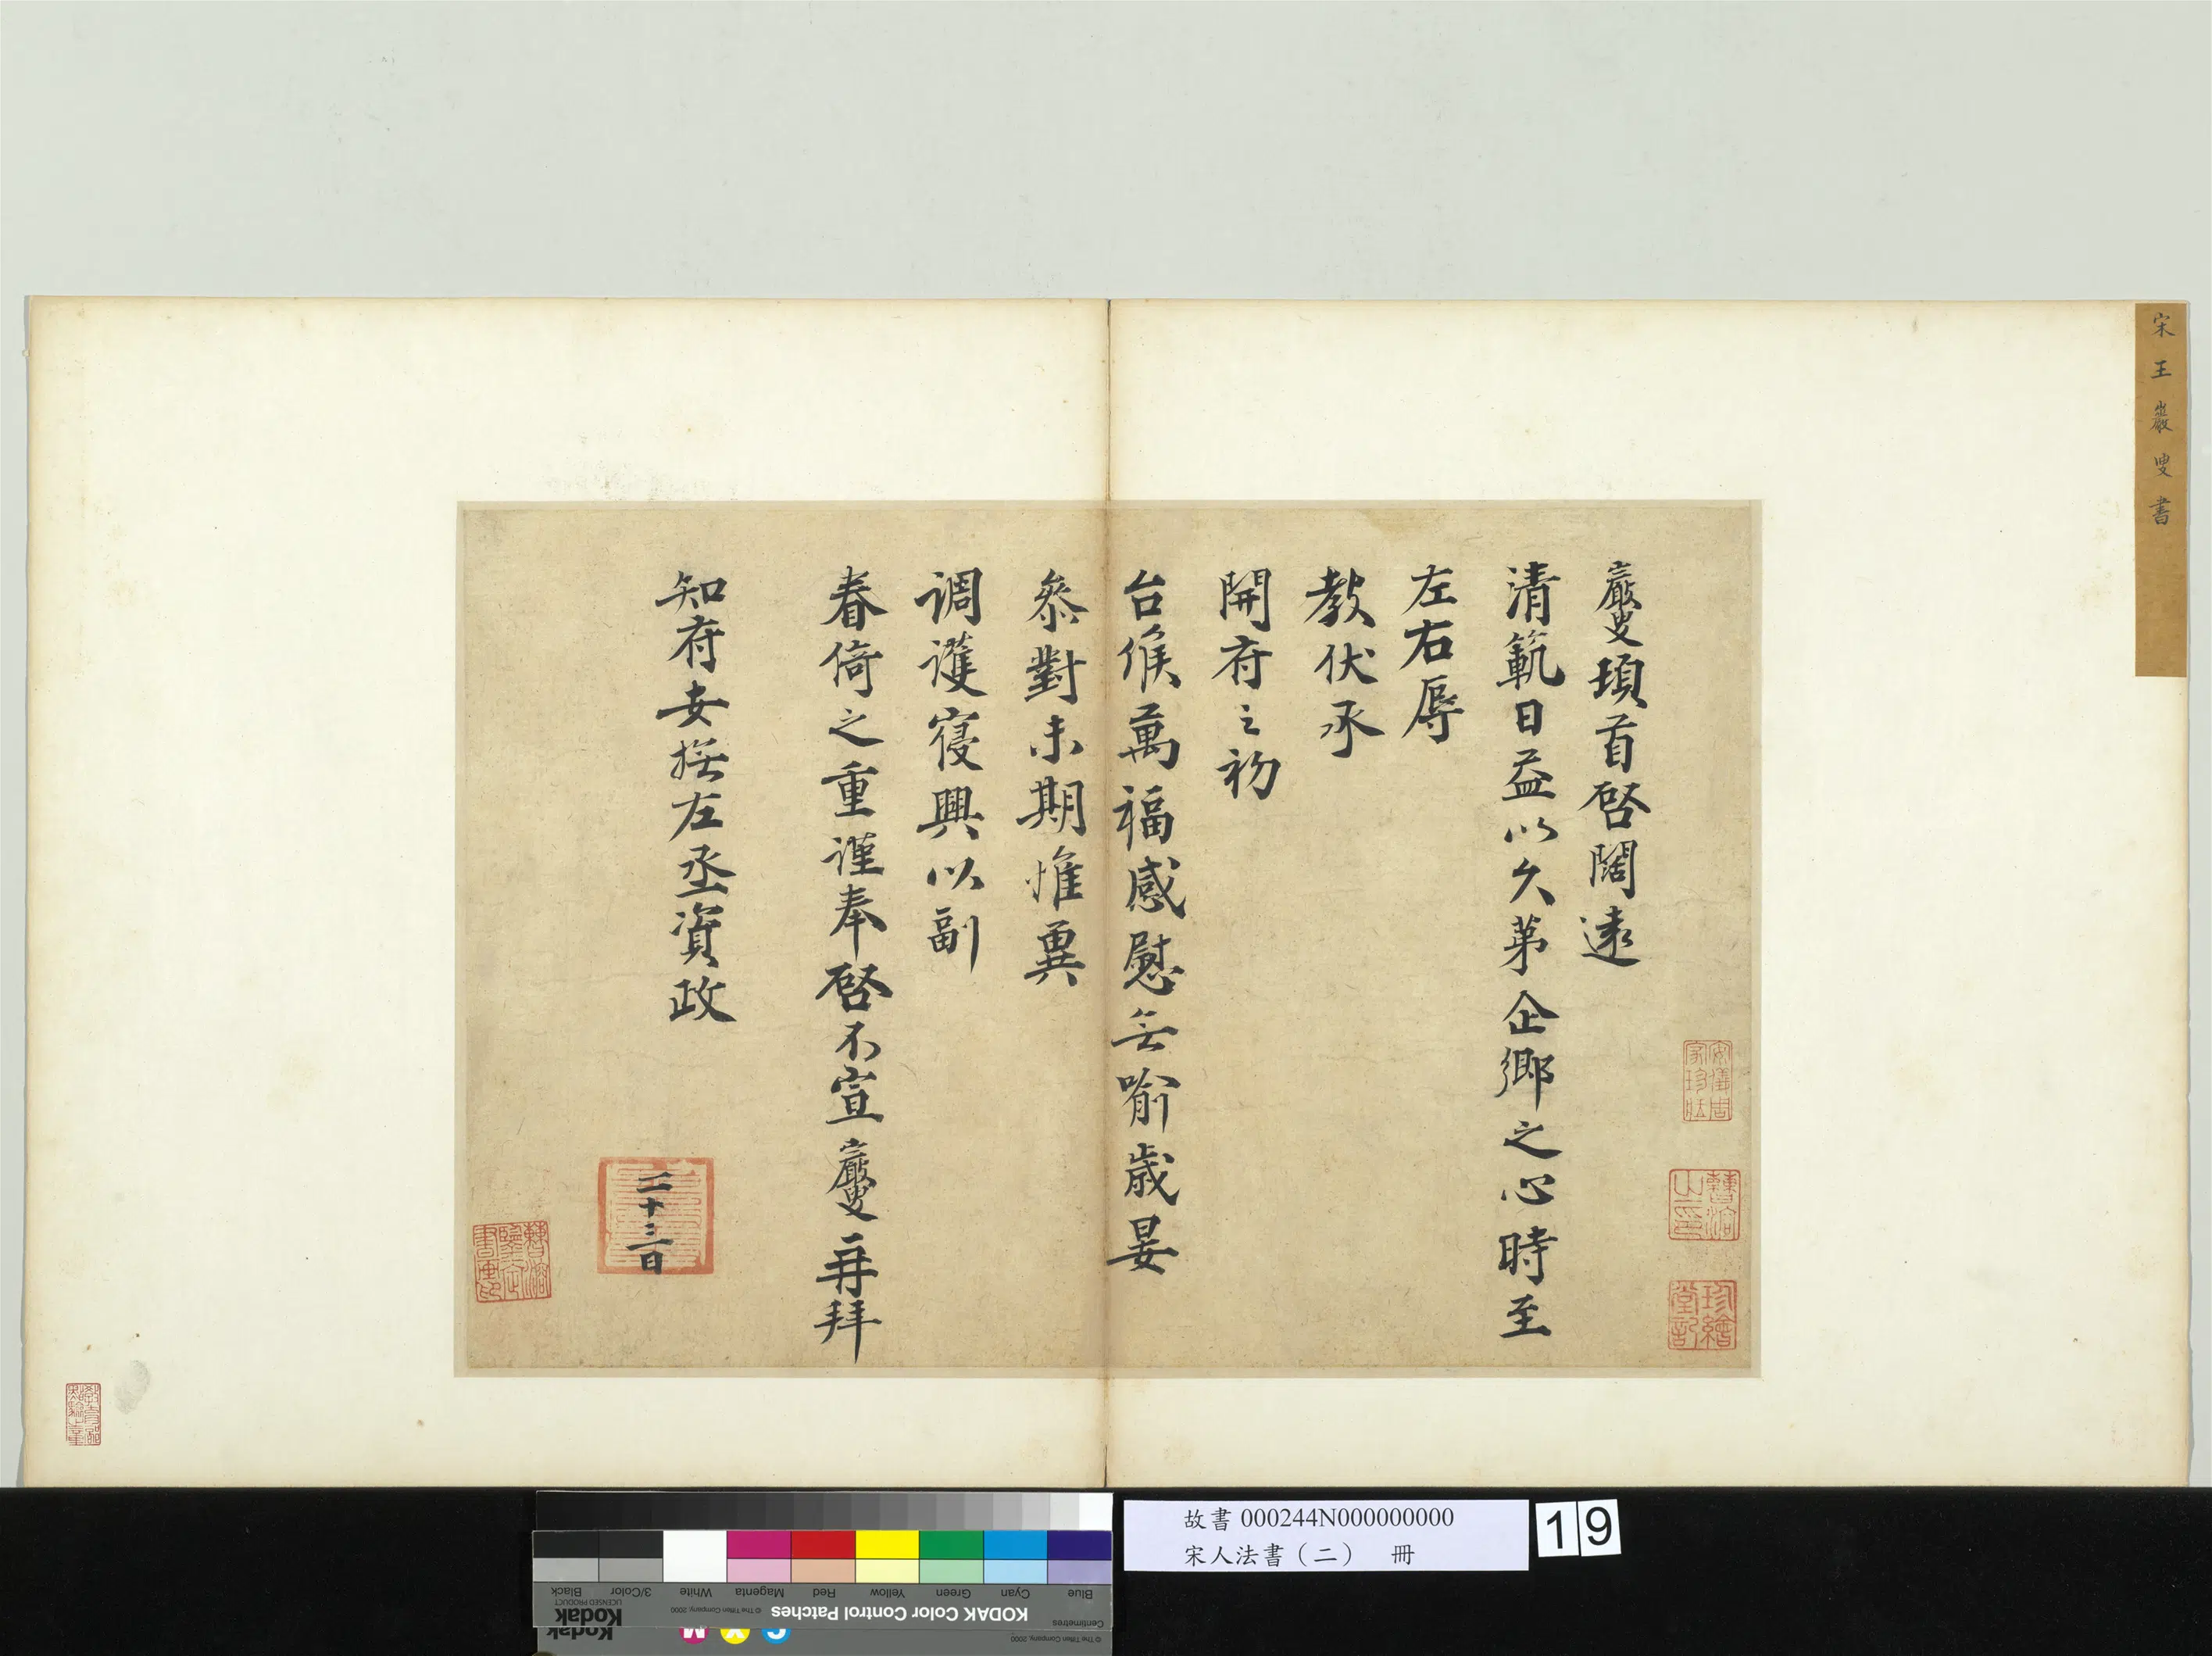 宋王巖叟書
巖叟頊首啓闊遠
清範日益以久第企鄉之心時至
左右辱
教伏承
開府之初
台候萬福感慰無喻歲晏
叅對未期惟冀
調護寢興以副
眷倚之重謹奉啓不宣巖叟再拜
知府安撫左丞資政
二十三日
安儀周家珍藏
珍繪堂記
故書 000244N000000000
宋人法書（二） 冊
19
Blue
Cyan
Green
Yellow
Red
Magenta
White
3/Color
Black
Centimetres
KODAK Color Control Patches
© The Tiffen Company, 2000
Kodak
LICENSED PRODUCT
C
Y
M
© The Tiffen Company, 2000
Kodak